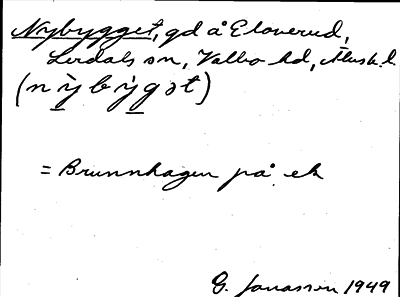 Nybygget, gd å Eloverud,
Lerdals sn, Valbo hd, Älvsb. l.
(nỳbỳgət)
= Brunnhagen på ek
G. Jonasson 1949